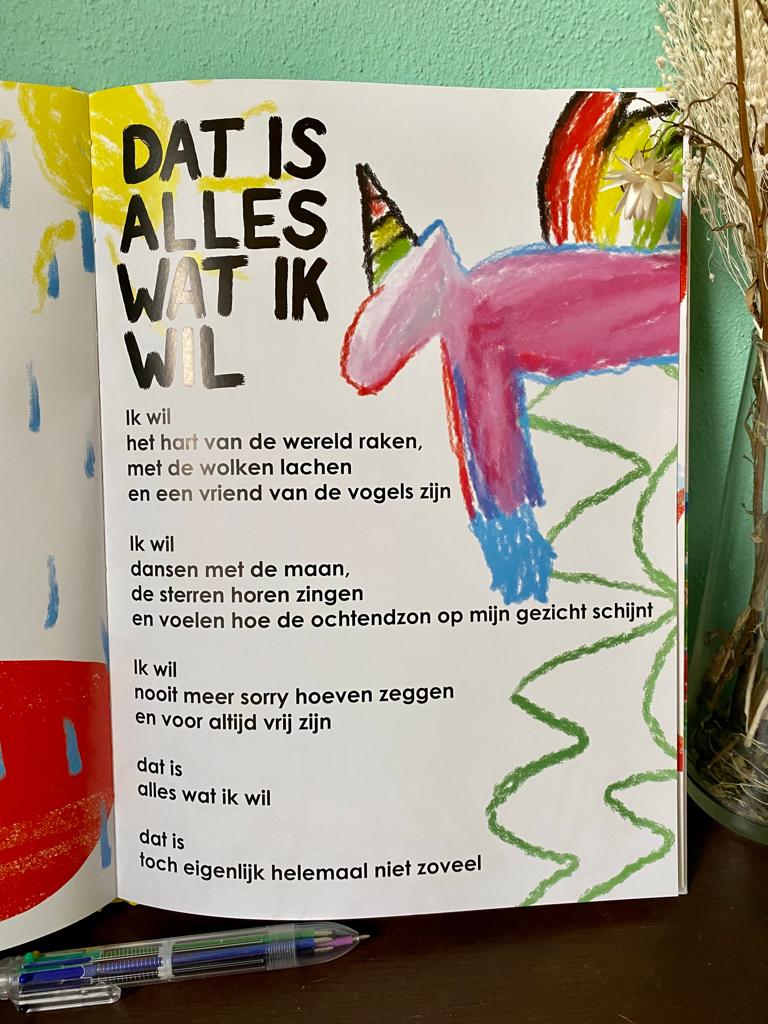 DAT IS
ALLES
WAT IK
WIL
Ik wil
het hart van de wereld raken,
met de wolken lachen
en een vriend van de vogels zijn
Ik wil
dansen met de maan,
de sterren horen zingen
en voelen hoe de ochtendzon op mijn gezicht schijnt
Ik wil
nooit meer sorry hoeven zeggen
en voor altijd vrij zijn
dat is
alles wat ik wil
dat is
toch eigenlijk helemaal niet zoveel